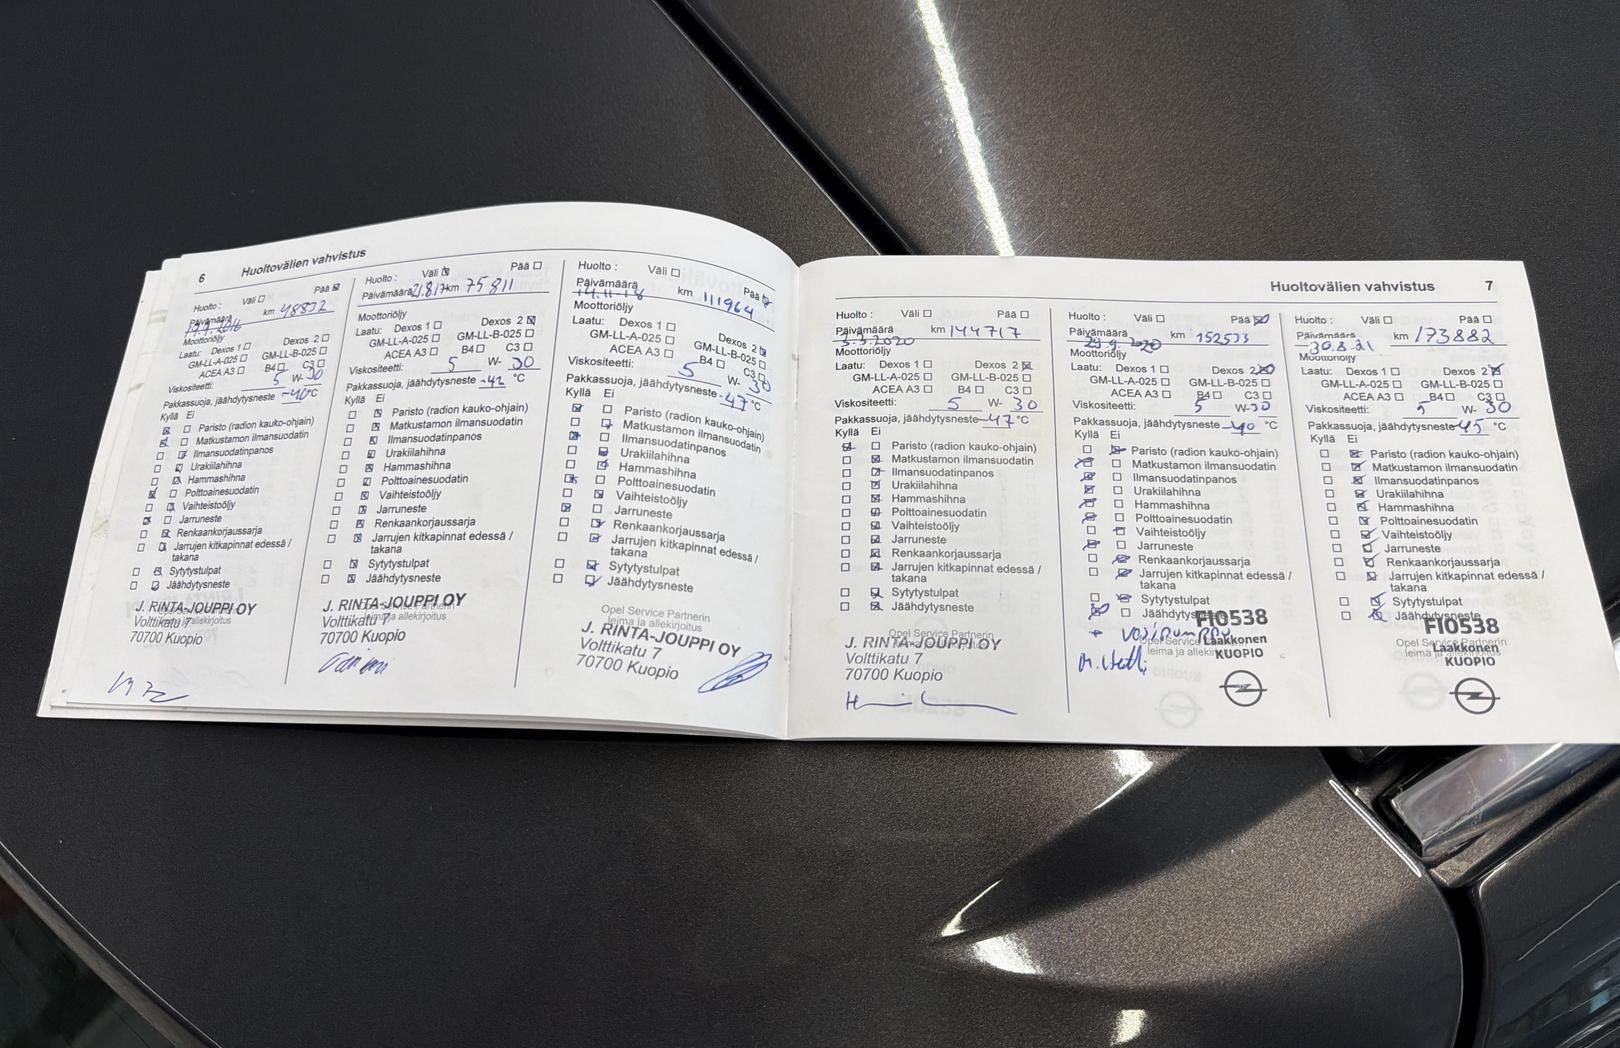 6 Huoltovälien vahvistus
Huolto : Väli Pää
Päivämäärä km 48832
19.9.2016
Moottoriöljy
Laatu: Dexos 1 Dexos 2
GM-LL-A-025 GM-LL-B-025
ACEA A3 B4 C3
Viskositeetti: 5 W- 30
Pakkassuoja, jäähdytysneste -40 °C
Kyllä Ei
Paristo (radion kauko-ohjain)
Matkustamon ilmansuodatin
Ilmansuodatinpanos
Urakiilahihna
Hammashihna
Polttoainesuodatin
Vaihteistoöljy
Jarruneste
Renkaankorjaussarja
Jarrujen kitkapinnat edessä /
takana
Sytytystulpat
Jäähdytysneste
J. RINTA-JOUPPI OY
Volttikatu 7
70700 Kuopio
Huolto : Väli Pää
Päivämäärä 21.8.17 km 75811
Moottoriöljy
Laatu: Dexos 1 Dexos 2
GM-LL-A-025 GM-LL-B-025
ACEA A3 B4 C3
Viskositeetti: 5 W- 30
Pakkassuoja, jäähdytysneste -42 °C
Kyllä Ei
Paristo (radion kauko-ohjain)
Matkustamon ilmansuodatin
Ilmansuodatinpanos
Urakiilahihna
Hammashihna
Polttoainesuodatin
Vaihteistoöljy
Jarruneste
Renkaankorjaussarja
Jarrujen kitkapinnat edessä /
takana
Sytytystulpat
Jäähdytysneste
J. RINTA-JOUPPI OY
Volttikatu 7
70700 Kuopio
Huolto : Väli Pää
Päivämäärä km 111964
14.11-18
Moottoriöljy
Laatu: Dexos 1 Dexos 2
GM-LL-A-025 GM-LL-B-025
ACEA A3 B4 C3
Viskositeetti: 5 W- 30
Pakkassuoja, jäähdytysneste -47 °C
Kyllä Ei
Paristo (radion kauko-ohjain)
Matkustamon ilmansuodatin
Ilmansuodatinpanos
Urakiilahihna
Hammashihna
Polttoainesuodatin
Vaihteistoöljy
Jarruneste
Renkaankorjaussarja
Jarrujen kitkapinnat edessä /
takana
Sytytystulpat
Jäähdytysneste
Opel Service Partnerin
leima ja allekirjoitus
J. RINTA-JOUPPI OY
Volttikatu 7
70700 Kuopio
Huoltovälien vahvistus 7
Huolto : Väli Pää
Päivämäärä km 144717
3.3.2020
Moottoriöljy
Laatu: Dexos 1 Dexos 2
GM-LL-A-025 GM-LL-B-025
ACEA A3 B4 C3
Viskositeetti: 5 W- 30
Pakkassuoja, jäähdytysneste -47 °C
Kyllä Ei
Paristo (radion kauko-ohjain)
Matkustamon ilmansuodatin
Ilmansuodatinpanos
Urakiilahihna
Hammashihna
Polttoainesuodatin
Vaihteistoöljy
Jarruneste
Renkaankorjaussarja
Jarrujen kitkapinnat edessä /
takana
Sytytystulpat
Jäähdytysneste
Opel Service Partnerin
J. RINTA-JOUPPI OY
Volttikatu 7
70700 Kuopio
Huolto : Väli Pää
Päivämäärä km 152533
29.9.2020
Moottoriöljy
Laatu: Dexos 1 Dexos 2
GM-LL-A-025 GM-LL-B-025
ACEA A3 B4 C3
Viskositeetti: 5 W- 30
Pakkassuoja, jäähdytysneste -40 °C
Kyllä Ei
Paristo (radion kauko-ohjain)
Matkustamon ilmansuodatin
Ilmansuodatinpanos
Urakiilahihna
Hammashihna
Polttoainesuodatin
Vaihteistoöljy
Jarruneste
Renkaankorjaussarja
Jarrujen kitkapinnat edessä /
takana
Sytytystulpat
Jäähdytysneste
FI0538
+ vesipumppu
Opel Service Laakkonen
leima ja allekirjoitus KUOPIO
Huolto : Väli Pää
Päivämäärä km 173882
30.8.21
Moottoriöljy
Laatu: Dexos 1 Dexos 2
GM-LL-A-025 GM-LL-B-025
ACEA A3 B4 C3
Viskositeetti: 5 W- 30
Pakkassuoja, jäähdytysneste -45 °C
Kyllä Ei
Paristo (radion kauko-ohjain)
Matkustamon ilmansuodatin
Ilmansuodatinpanos
Urakiilahihna
Hammashihna
Polttoainesuodatin
Vaihteistoöljy
Jarruneste
Renkaankorjaussarja
Jarrujen kitkapinnat edessä /
takana
Sytytystulpat
Jäähdytysneste
FI0538
Opel Service Partnerin
Laakkonen
KUOPIO